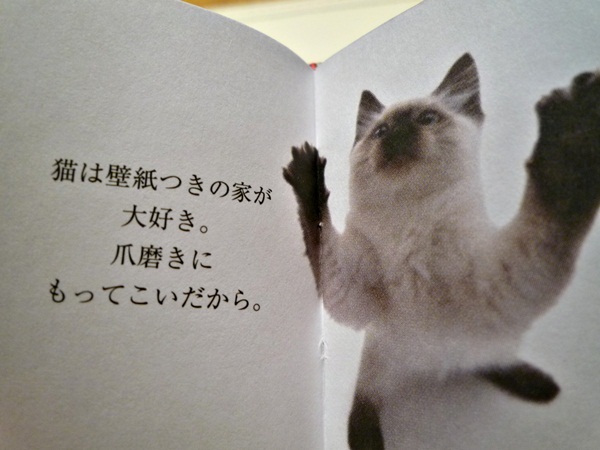 猫は壁紙つきの家が
大好き。
爪磨きに
もってこいだから。